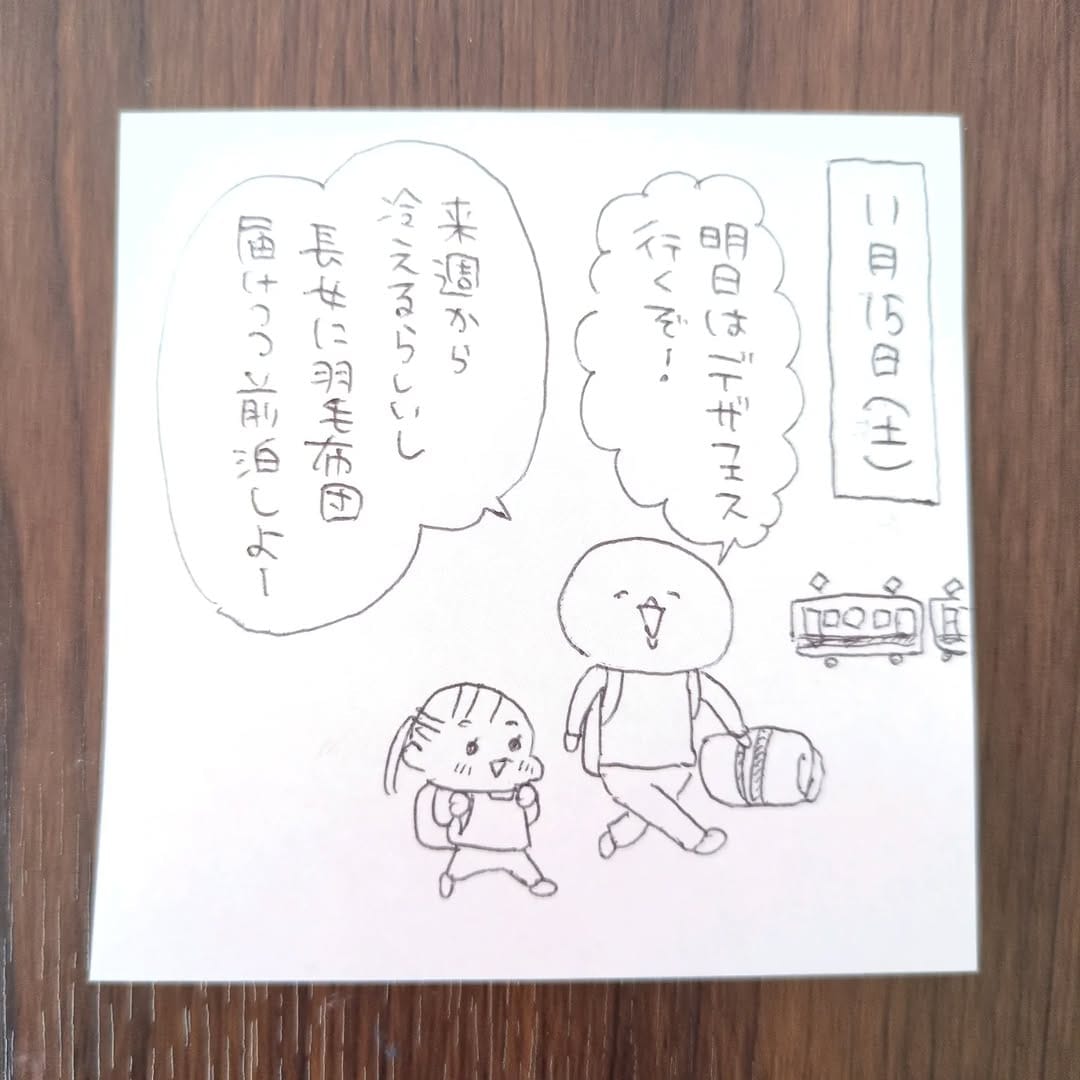 11月15日(土)
明日はデザフェス
行くぞ!
来週から
冷えるらしいし
長女に羽毛布団
届けつつ前泊しよー